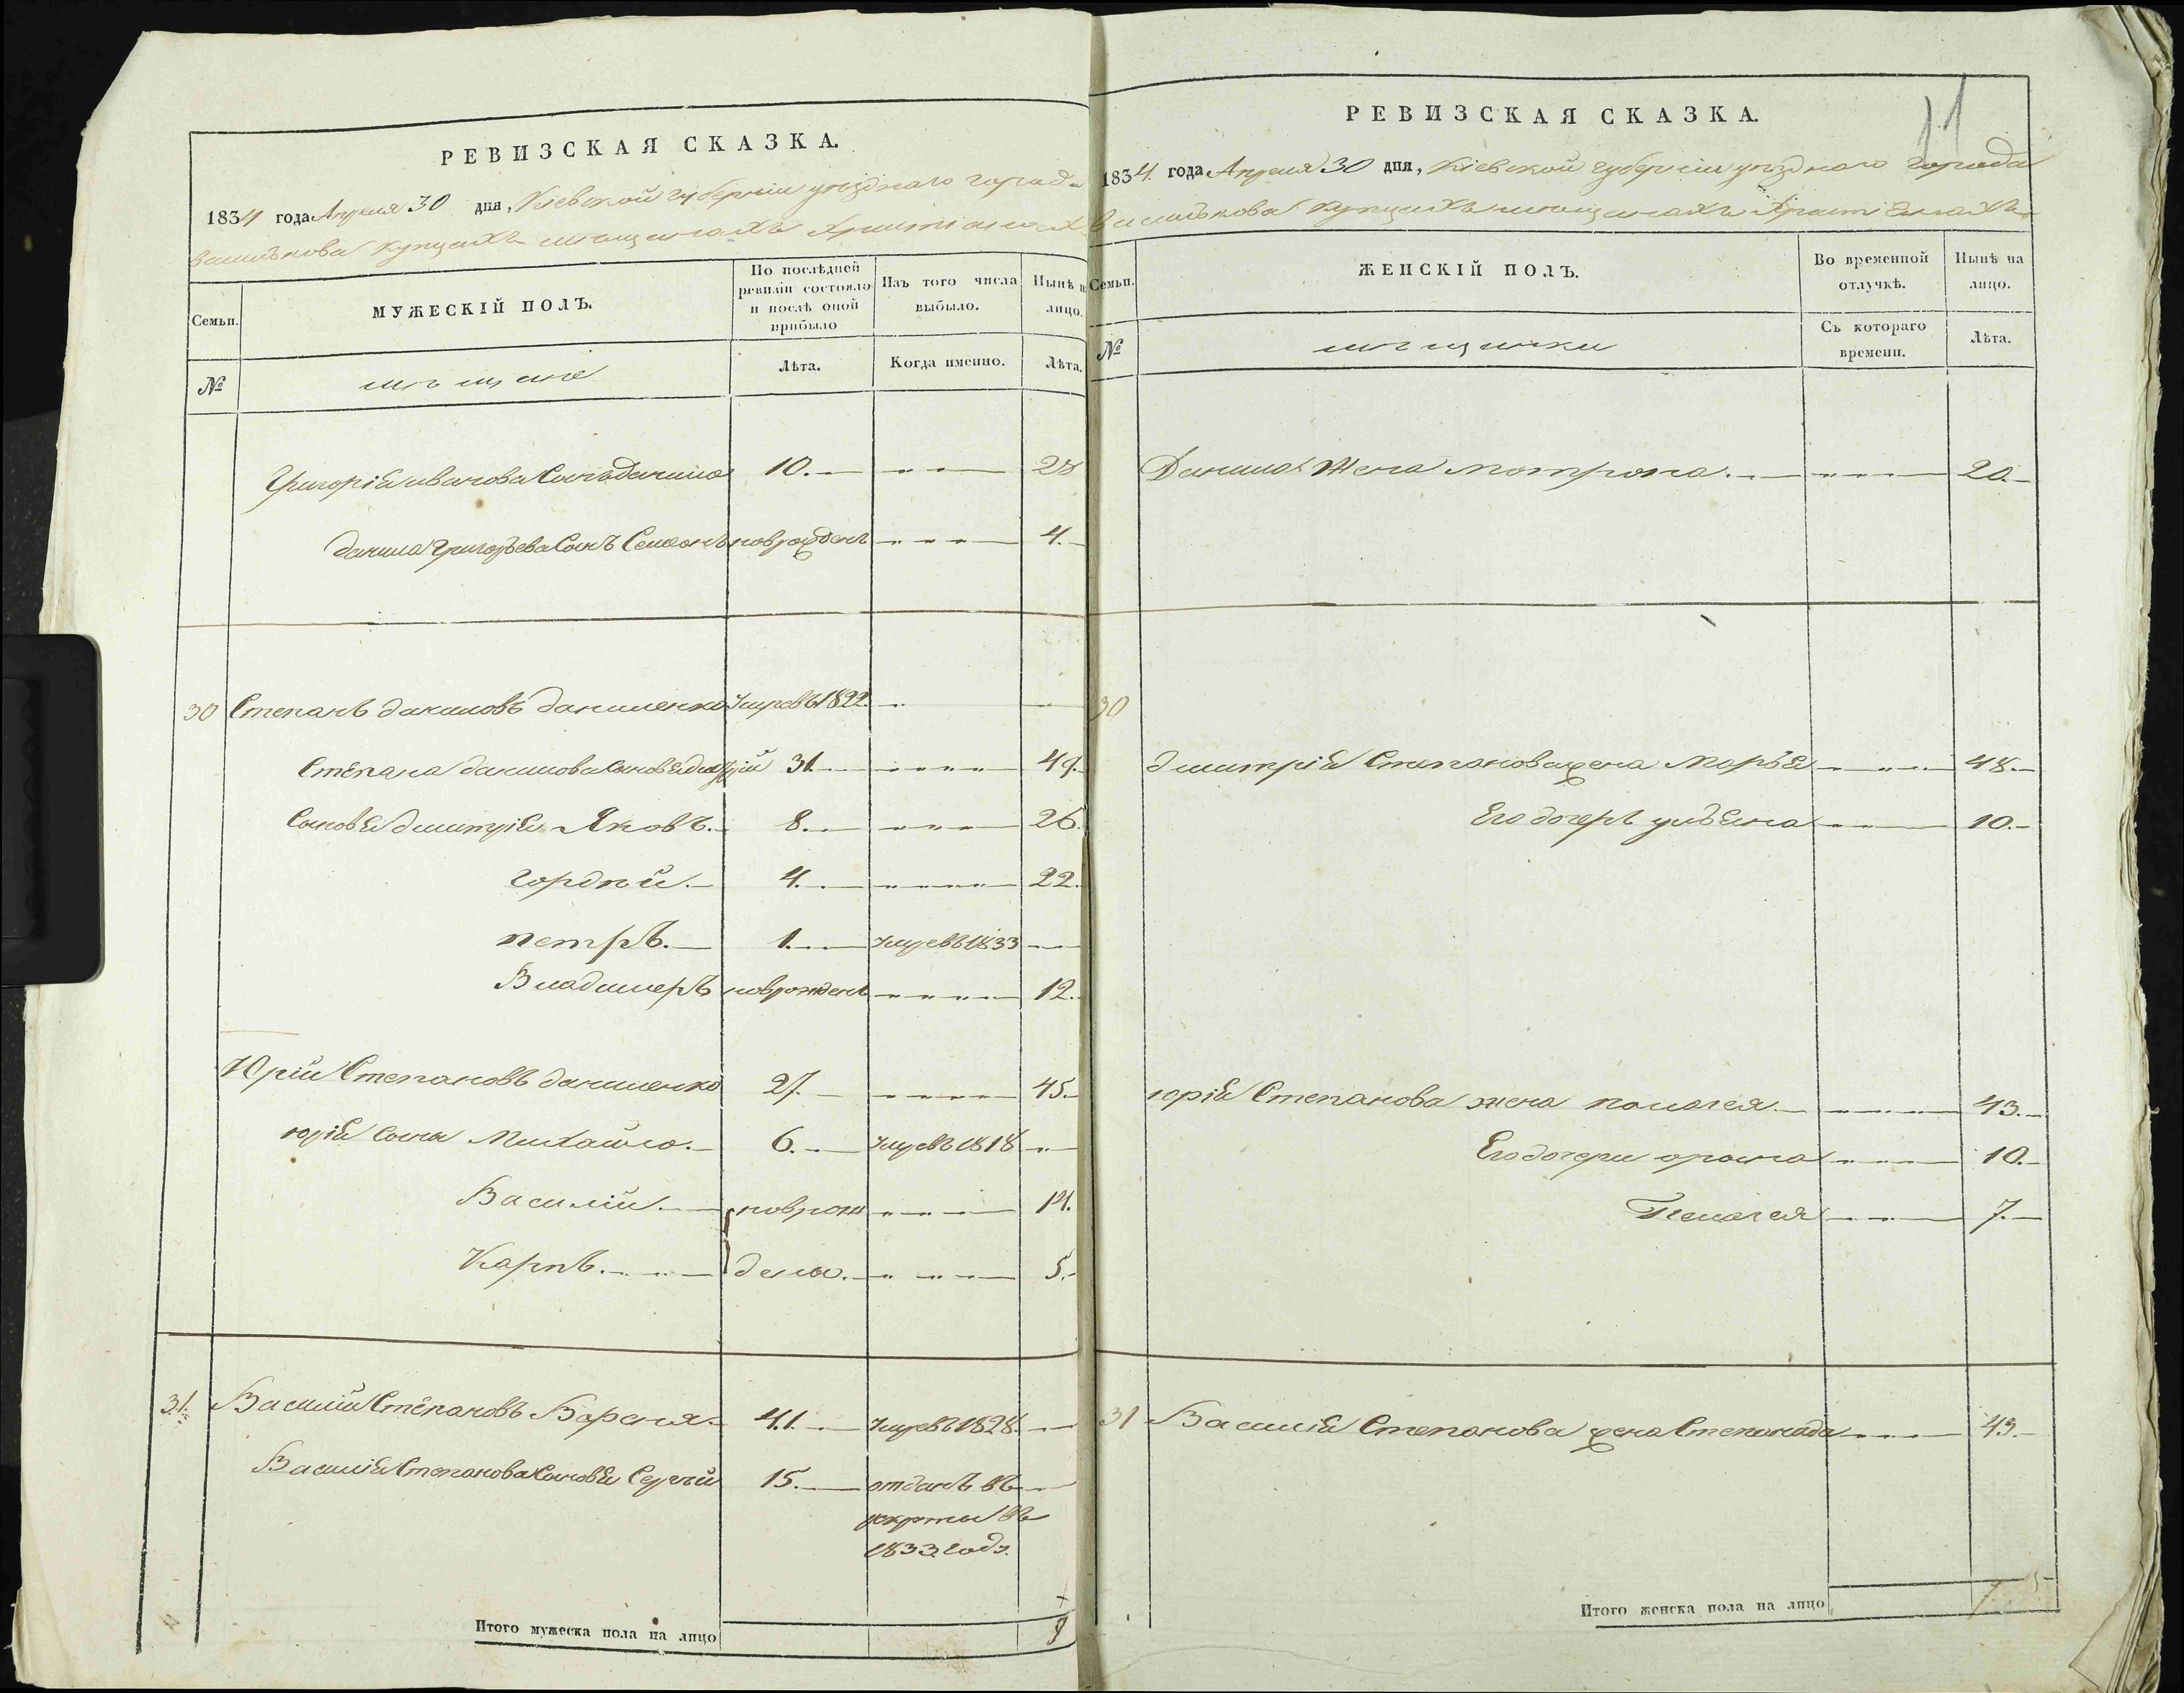 РЕВИЗСКАЯ СКАЗКА.
1834 года Апреля 30 дня, Кіевской губерніи уѣзднаго города
Василькова купцахъ мѣщанахъ Христіанах
Семьи.
МУЖЕСКІЙ ПОЛЪ.
По послѣдней ревизіи состояло и послѣ оной прибыло
Изъ того числа выбыло.
Нынѣ н лицо.
№
мѣщане
Лѣта.
Когда именно.
Лѣта.
Григорія Иванова Сынъ Данило 10. 28
Данила Григорьева Сынъ Семенъ новрожденъ 4.
30 Степанъ Даниловъ Даниленко умревъ 1822.
Степана Данилова Сыновья 31 49.
Сыновья Дмитрія Яковъ. 8. 26.
Гордѣй. 4. 22.
петръ. 1. умревъ 1833
Владимеръ новрожденъ 12.
Юрій Степановъ Даниленко 27. 45.
юрія Сыны Михайло. 6. умревъ 1818
Василій. новрож 14.
Карпъ. дены. 5.
31. Василій Степановъ 41. умревъ 1828.
Василія Степанова Сыновья Сергѣй 15. отданъ въ
рекруты въ
1833 году.
Итого мужеска пола на лицо 8
11
РЕВИЗСКАЯ СКАЗКА.
1834. года Апреля 30 дня, Кіевской губерніи уѣзднаго города
Василькова купцахъ мѣщанахъ Христіянахъ
Семьи.
ЖЕНСКІЙ ПОЛЪ.
Во временной отлучкѣ.
Нынѣ на лицо.
№
мѣщанки
Съ котораго времени.
Лѣта.
Данила Жена мотрона. 20.
30
Дмитрія Степанова жена Марья 48.
Его дочерь ульяна 10.
юрія Степанова жена палагея. 43.
Его дочери орина 10.
Пелагея 7.
31 Василія Степанова жена Степанида 43.
Итого женска пола на лицо 7.